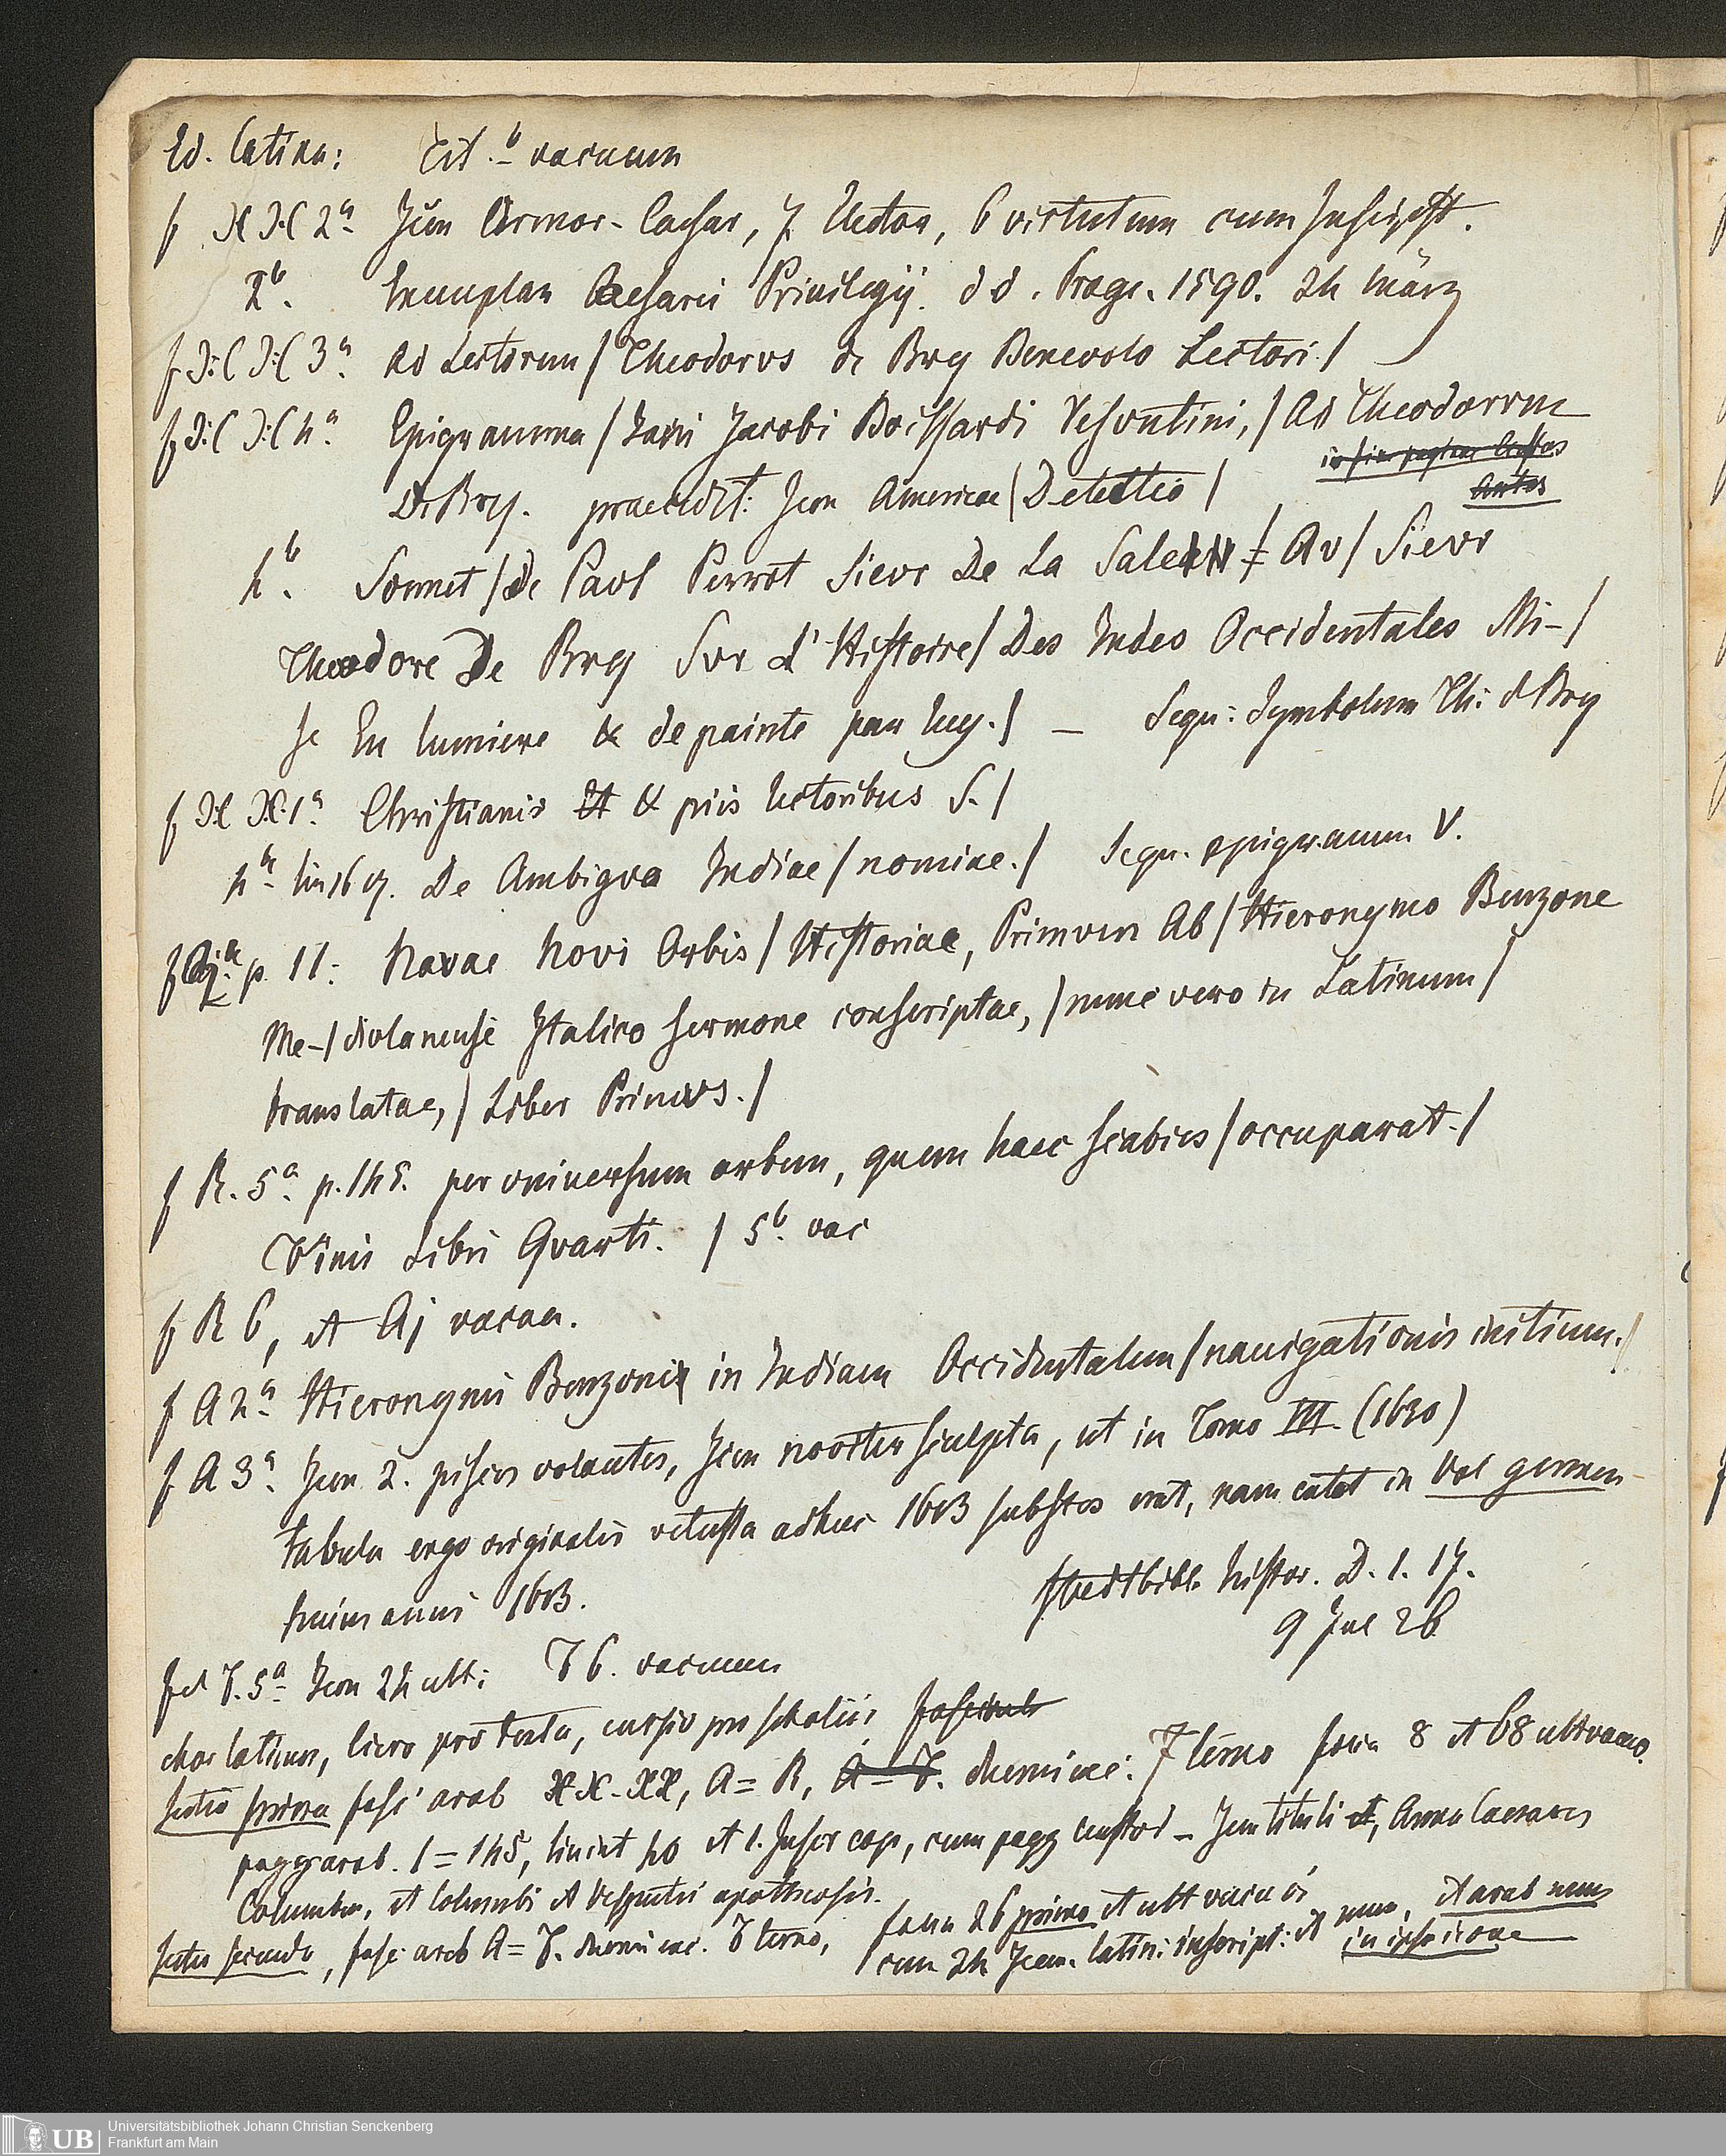 Ed. latina: Tit.b vacuum
f ):( ):( 2a Icon Armor. Caesar, 7 Electon, 6 virtutum cum Inscript.
2b. Exemplar Caesarei Priuilegij. dd. Prage. 1590. 24 März
f ):( ):( 3a. Ad Lectorem / Theodorvs de Bry Benevolo Lectori. /
f ):( ):( 4a. Epigramma / Iani Jacobi Boissardi Vesvntini, / Ad Theodorvm
De Bry. praecedit: Icon Americae / Detectio /
4b. Sonnet / de Pavl Perrot Sievr De La Sale / Av / Sievr
Theodore De Bry Svr L'Histoire / Des Indes Occidentales Mi- /
se En lumiere & depainte par luy. / — Sequ: Symbolum Th: d Bry
f ):( ):( 1a. Christianis & piis lectoribus S. /
4a lin 16 De Ambigva Indiae / nomine. / Sequ. epigramm V.
p. 11: Novae Novi Orbis / Historiae, Primvm Ab / Hieronymo Benzone
Me- / diolanense Italico sermone conscriptae, / nunc vero in Latinum /
translatae, / Liber Primvs. /
f R. 5a. p. 145. per vniuersum orbem, quem haec scabies / occuparat. /
Finis Libri Qvarti. / 5b. vac
f R 6, et Aj vacua.
f A 2a Hieronymi Benzonis in Indiam Occidentalem / nauigationis initium. /
f A 3a. Icon 2. pisces volantes, Icon noviter sculpta, ut in Tomo III. (1630)
tabula ergo originalis vetusta adhuc 1613 substes erat, nam extat in Vol german
huius anni 1613.
Stadtbibl. histor. D. 1. 17.
9 Jul 26
fol F. 5a Icon 24 ult: F 6. vacuum
char latinus, licero pro textu, cursiv pro scholiis
Sectio prima fasc arab A = R, Numine: 7 terno folia 8 et 68 ult vacuo.
pagg arab. 1 = 145, lineat 40 et 1. Inscr cap, cum pagg custod - Icon tituli, Arma Caesaris
Columbus, et Columbi et Vesputii apotheosis.
Sectio secunda, fasc: arab A = F. Numine. F terno, folia 26 primo et ult vacuo
cum 24 Icon. latin: inscript: et num, et arab num
in ipso icone